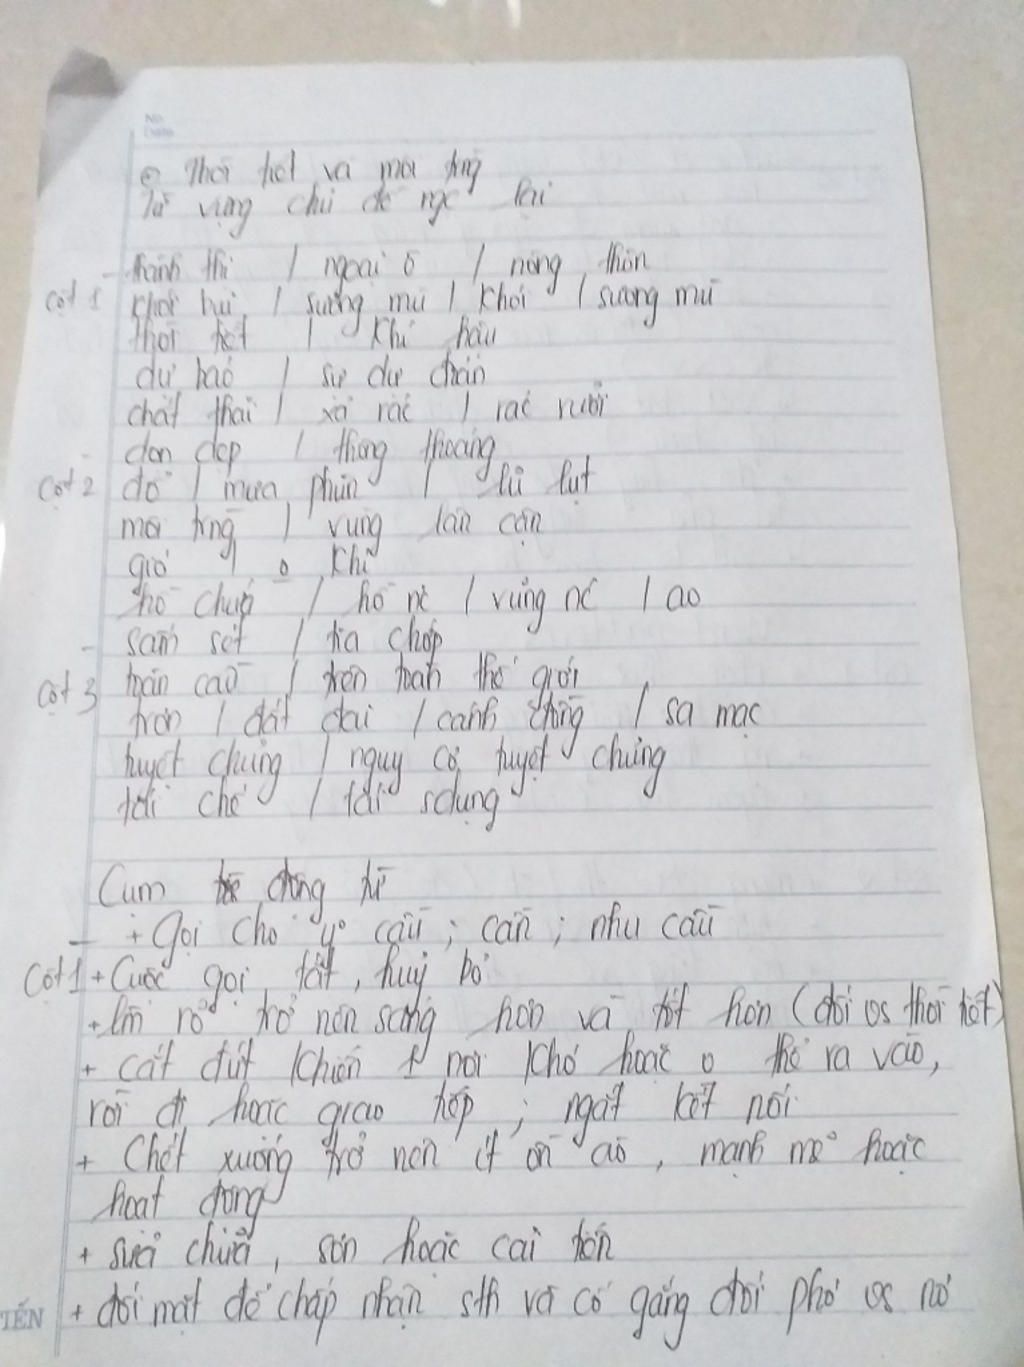 No.
Date
Thời tiết và môi trng
Từ vựng chủ đề ngc lại
- thành thị / ngoại ô / nông thôn
Cột 1 khói bụi / sương mù / khói / sương mù
thời tiết / khí hậu
dự báo / sự dự đoán
chất thải / xả rác / rác rưởi
dọn dẹp / thông thoáng
Cột 2 đổ / mưa phùn / lũ lụt
môi trng / vùng lân cận
gió / o khí
hồ chứa / hồ nc / vũng nc / ao
- sấm sét / tia chớp
Cột 3 toàn cầu / trên toàn thế giới
trơn / đất đai / cánh đồng / sa mạc
tuyệt chủng / nguy cơ tuyệt chủng
tái chế / tái sdụng
Cụm động từ
- + Gọi cho yo cầu ; cần ; nhu cầu
Cột 1 + Cuộc gọi tắt, huỷ bỏ
+ làm rõ trở nên sáng hơn và tốt hơn (đối vs thời tiết)
+ cắt đứt khiến 1 nơi khó hoặc o thể ra vào,
rời đi hoặc giao tiếp ; ngắt kết nối
+ Chết xuống trở nên ít ồn ào, mạnh mẽ hoặc
hoạt động
+ sửa chữa, sơn hoặc cải tiến
TIẾN + đối mặt để chấp nhận sth và cố gắng đối phó vs nó